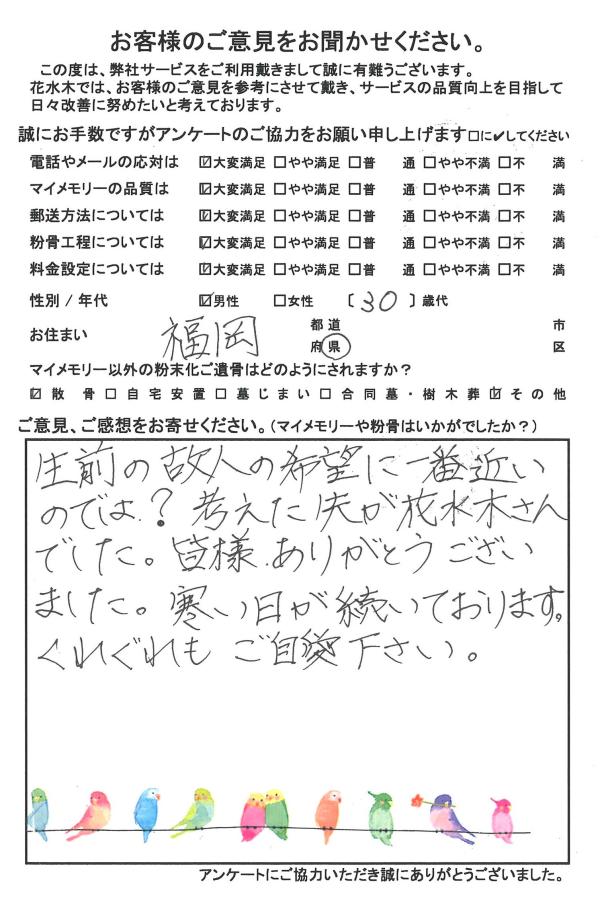 お客様のご意見をお聞かせください。
この度は、弊社サービスをご利用戴きまして誠に有難うございます。
花水木では、お客様のご意見を参考にさせて戴き、サービスの品質向上を目指して
日々改善に努めたいと考えております。
誠にお手数ですがアンケートのご協力をお願い申し上げます□に✓してください
電話やメールの応対は ☑大変満足 □やや満足 □普 通 □やや不満 □不 満
マイメモリーの品質は ☑大変満足 □やや満足 □普 通 □やや不満 □不 満
郵送方法については ☑大変満足 □やや満足 □普 通 □やや不満 □不 満
粉骨工程については ☑大変満足 □やや満足 □普 通 □やや不満 □不 満
料金設定については ☑大変満足 □やや満足 □普 通 □やや不満 □不 満
性別 / 年代 ☑男性 □女性 〔 30 〕歳代
お住まい 福岡 都道府県 市区
マイメモリー以外の粉末化ご遺骨はどのようにされますか？
☑散 骨 □自宅安置 □墓じまい □合同墓・樹木葬 ☑その他
ご意見、ご感想をお寄せください。（マイメモリーや粉骨はいかがでしたか？）
生前の故人の希望に一番近い
のでは？考えた
が花水木さん
でした。皆様、ありがとうござい
ました。寒い日が続いております。
くれぐれも ご自愛下さい。
アンケートにご協力いただき誠にありがとうございました。